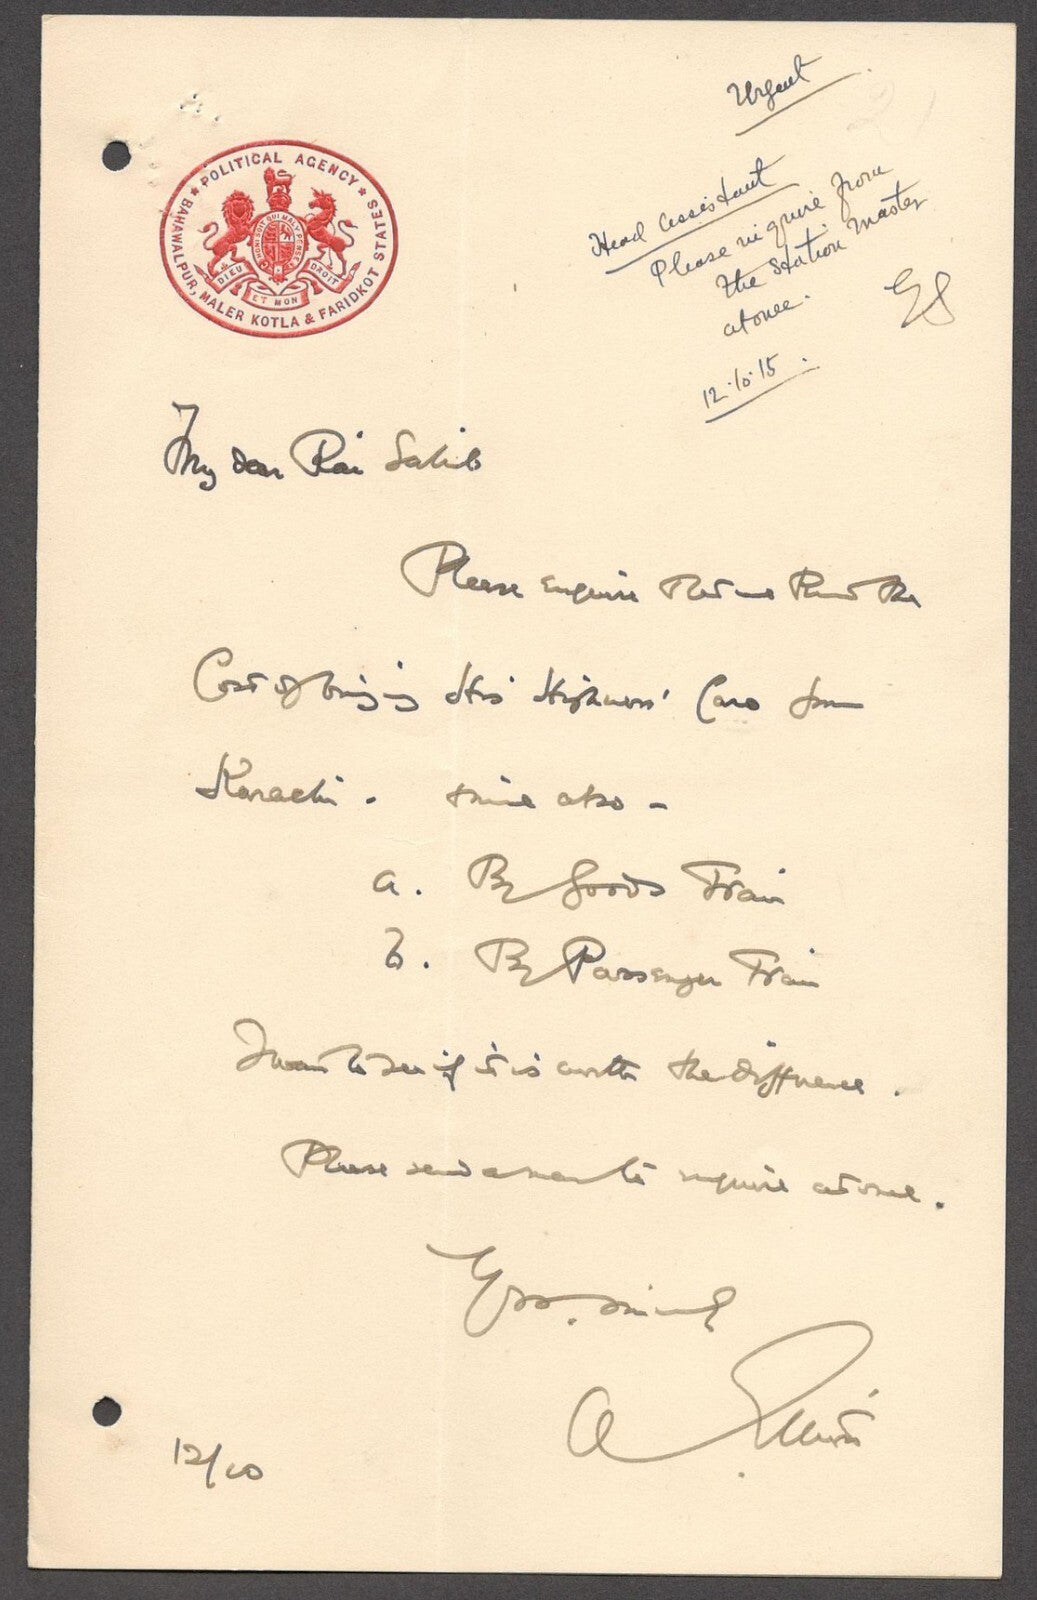 POLITICAL AGENCY
BAHAWALPUR, MALER KOTLA & FARIDKOT STATES
HONI SOIT QUI MAL Y PENSE
DIEU ET MON DROIT
Urgent
21
Head assistant
Please inquire from
the Station Master
atonce.
GS
12.10.15
My dear Rai Sahib
Please enquire the
Cost of bringing His Highness' Cars from
Karachi. time also –
a. By Goods Train
b. By Passenger Train
I want to see if it is worth the difference.
Please send a man to inquire at once.
Yrs. sincerely
A
12/10